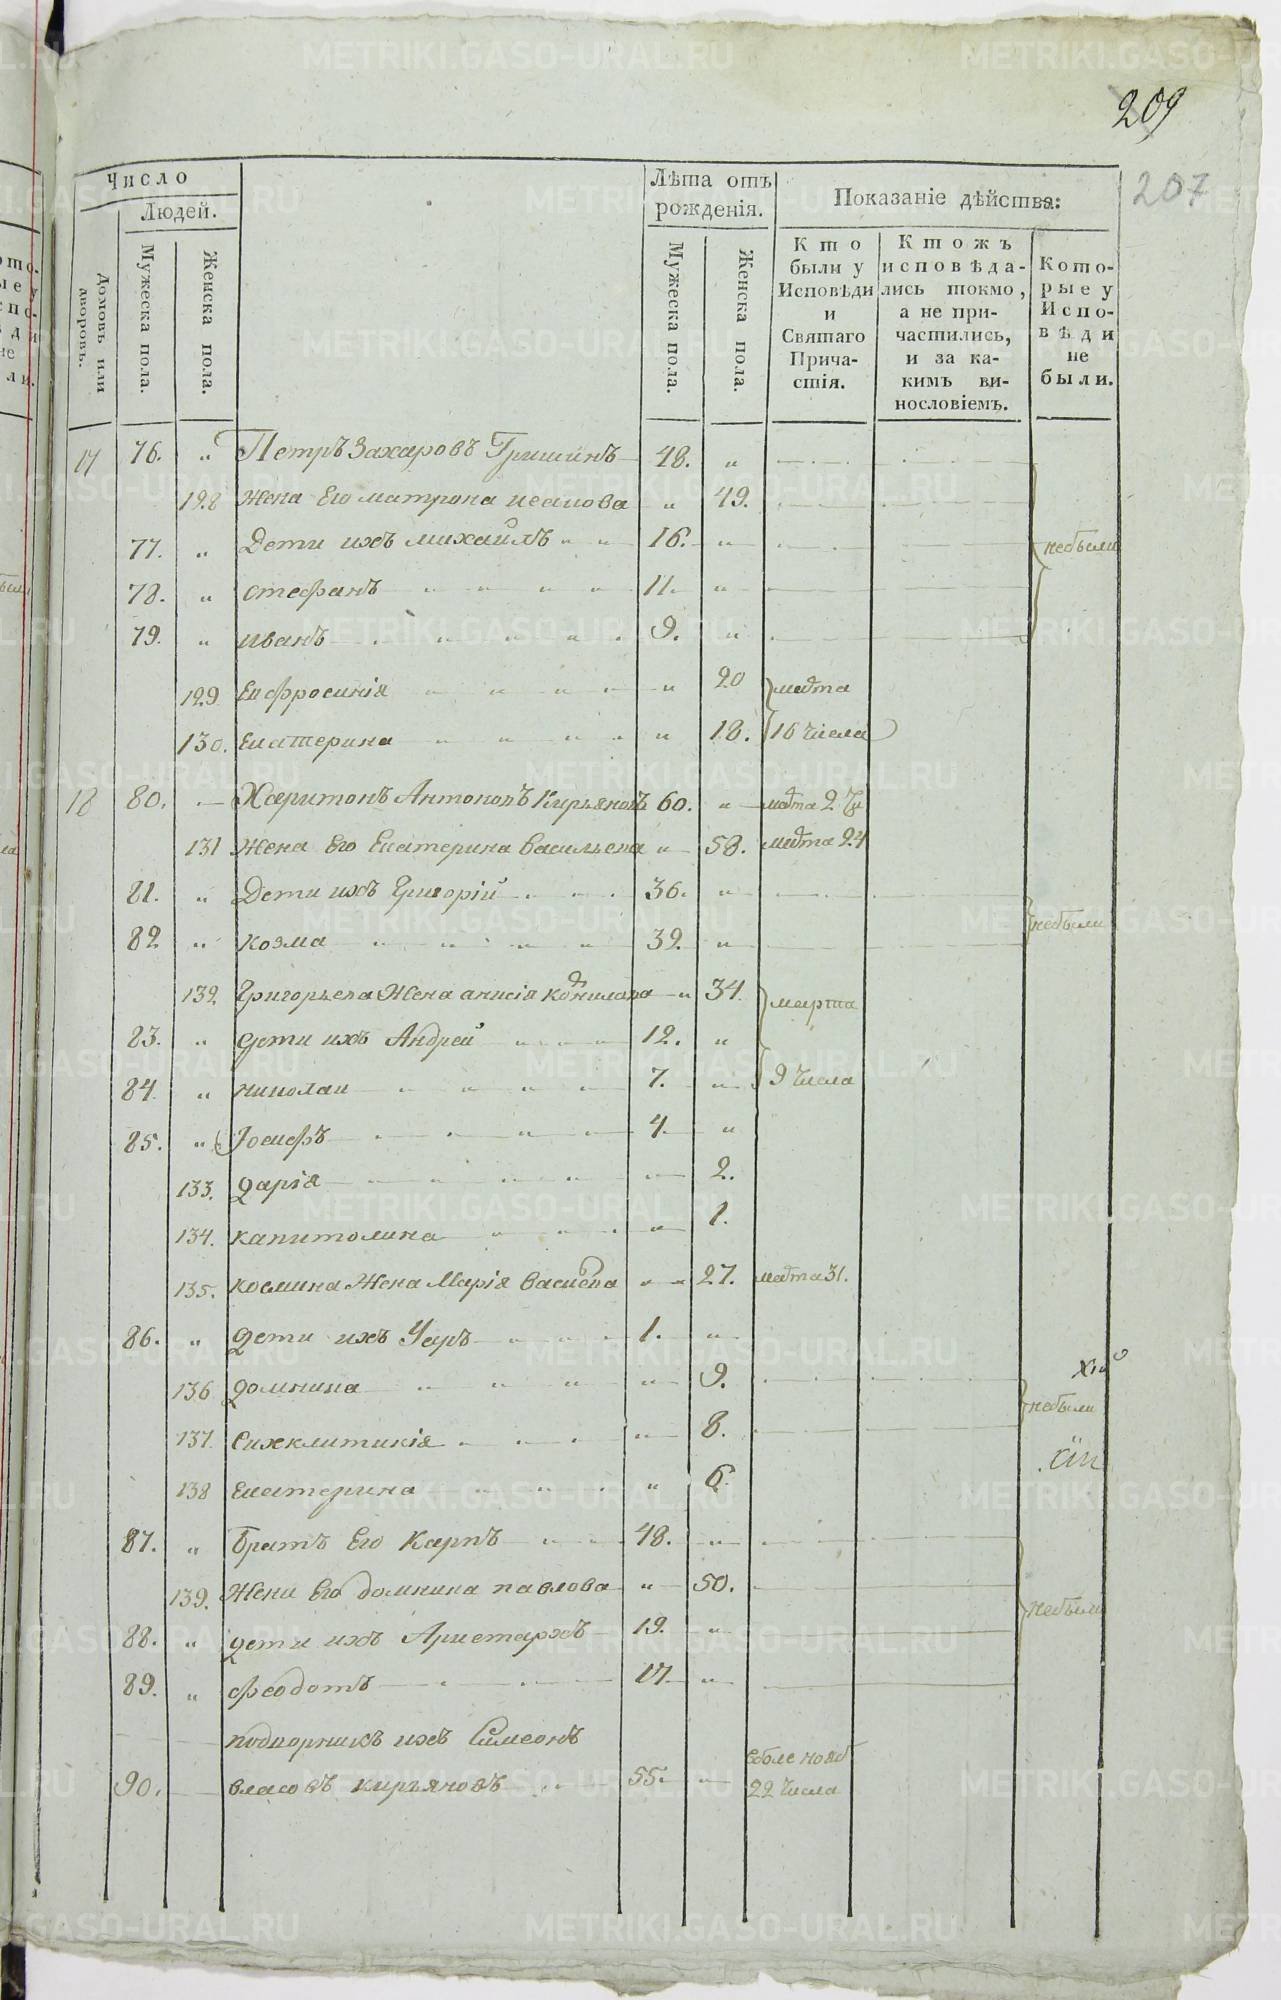 209
207
Число
Людей.
Лѣта отъ рожденія.
Показаніе дѣйства:
Домовъ или дворовъ.
Мужеска пола.
Женска пола.
Мужеска пола.
Женска пола.
Кто были у Исповѣди и Святаго Причастія.
Ктожъ исповѣдались токмо, а не причастились, и за какимъ винословіемъ.
Которые у Исповѣди не были.
17 76. „ Петръ Захаровъ Гришинъ 48. „
128 Жена Его матрона исакова „ 49.
77. „ Дети ихъ михайлъ „ „ 16. „ небыли
78. „ стефанъ „ „ „ „ 11. „
79. „ иванъ „ „ „ 9. „
129 Евфросинія „ „ „ „ 20 марта
130. Екатерина „ „ „ „ 18. 16 числа
18 80. Харитонъ Антоновъ Кирьяновъ 60. „ марта 2 чи
131 Жена Его Екатерина васильева „ 58. марта 24
81. „ Дети ихъ Григорій 36. „
82 „ козма „ „ „ „ 32. „ небыли
132 Григорьева Жена анисія корнилова „ 34. марта
83. „ дети ихъ Андрей „ „ „ 12. „
84. „ николаи „ „ „ „ 7. „ 9 числа
85. „ Іосифъ „ „ „ „ 4. „
133. дарія „ „ „ „ „ 2.
134. капитолина „ „ „ „ 1.
135. космина Жена Марія васильева „ „ 27. марта 31.
86. „ дети ихъ Уаръ „ „ „ 1. „
136 домнина „ „ „ „ 9.
небыли
137. Синклитикія „ 8.
138 Екатерина „ „ „ „ 6.
87. „ братъ Его Карпъ „ „ „ 48. „
139. Жена Его домнина павлова „ 50.
небыли
88. „ дети ихъ Аристархъ 19. „
89. „ феодотъ 17. „
подворникъ ихъ Симеонъ
90. власовъ кирьяновъ 55. „
22 числа
METRIKI.GASO-URAL.RU